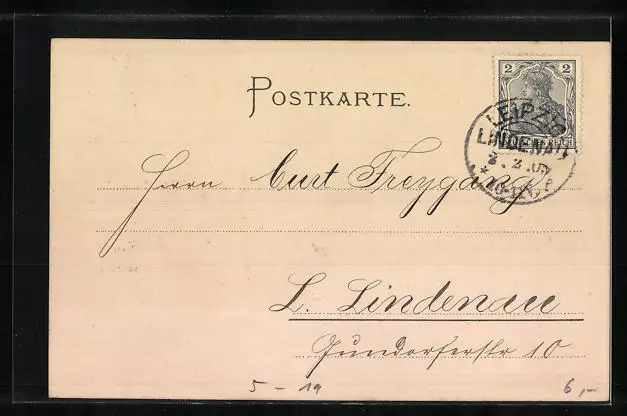 2 2
DEUTSCHES REICH
POSTKARTE.
LEIPZIG
LINDENAU
2. 07
* 10-11
Herrn Curt Freygang
L. Lindenau
Gundorferstr 10
5 - 19
6,-